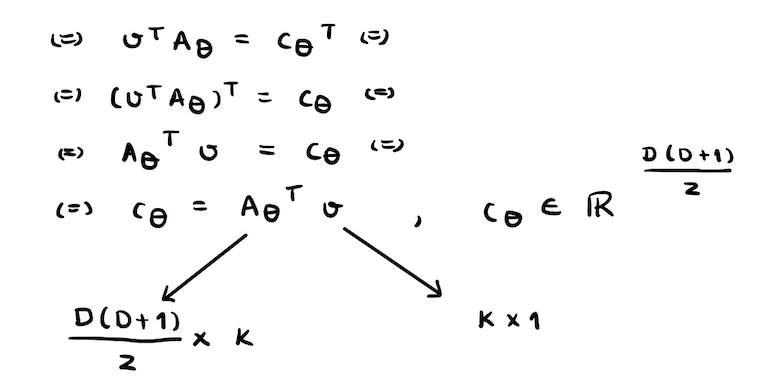 (=) υᵀ A_θ = c_θᵀ (=)
(=) (υᵀ A_θ)ᵀ = c_θ (=)
(=) A_θᵀ υ = c_θ (=)
(=) c_θ = A_θᵀ υ , c_θ ∈ ℝ^{D(D+1)/2}
D(D+1)/2 × K
K × 1